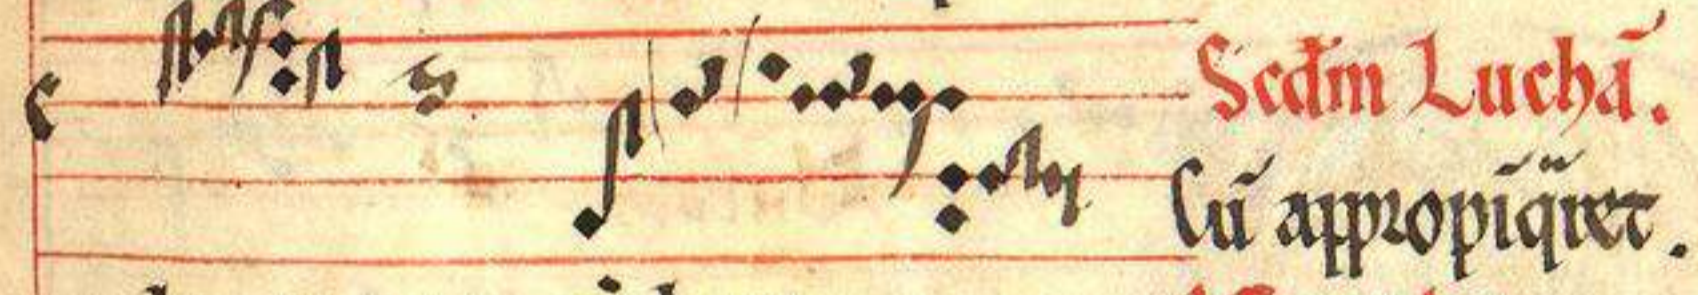 Scđm Luchā.
Cū appropīq̄ret.